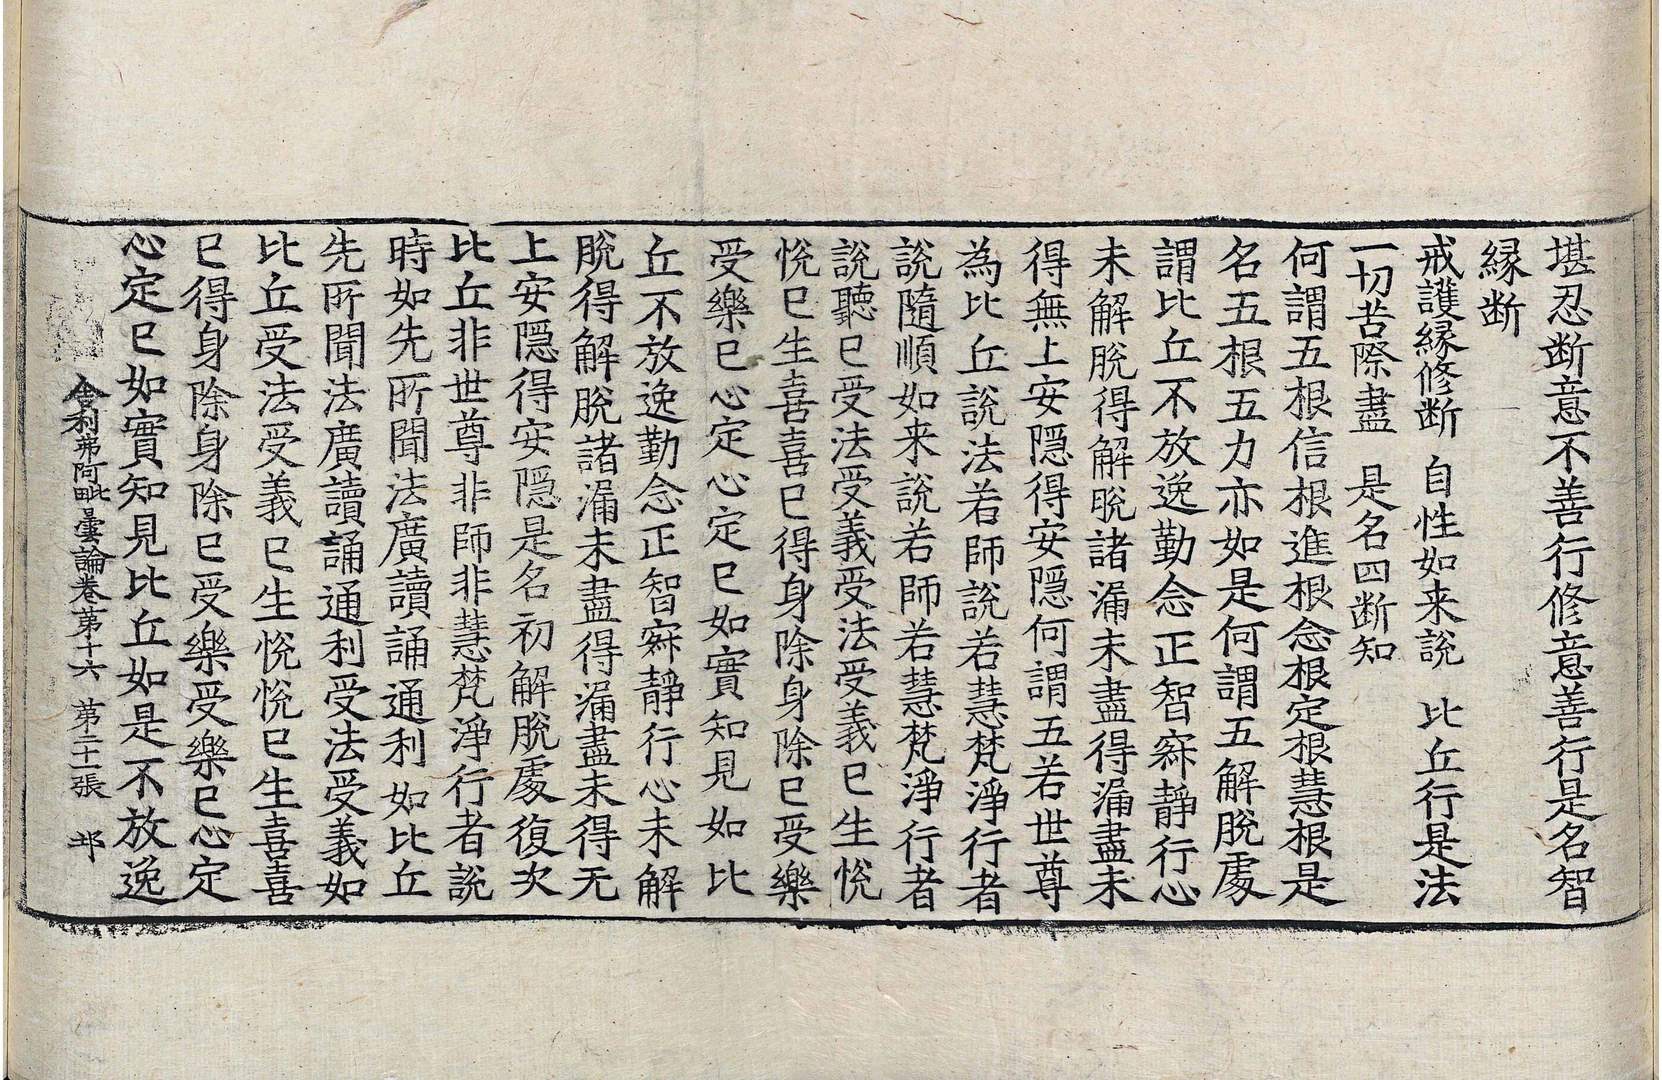 堪忍断意不善行修意善行是名智
縁断
戒護縁修断　自性如来說　比丘行是法
一切苦際盡　是名四断知
何謂五根信根進根念根定根慧根是
名五根五力亦如是何謂五解脫處
謂比丘不放逸勤念正智寂靜行心
未解脫得解脫諸漏未盡得漏盡未
得無上安隱得安隱何謂五若世尊
為比丘說法若師說若慧梵淨行者
說隨順如来說若師若慧梵淨行者
說聽已受法受義受法受義已生恱
恱已生喜喜已得身除身除已受樂
受樂已心定心定已如實知見如比
丘不放逸勤念正智寂靜行心未解
脫得解脫諸漏未盡得漏盡未得无
上安隱得安隱是名初解脫處復次
比丘非世尊非師非慧梵淨行者說
時如先所聞法廣讀誦通利如比丘
先所聞法廣讀誦通利受法受義如
比丘受法受義已生恱恱已生喜喜
已得身除身除已受樂受樂已心定
心定已如實知見比丘如是不放逸
舍利弗阿毗曇論卷第十六　第二十一張